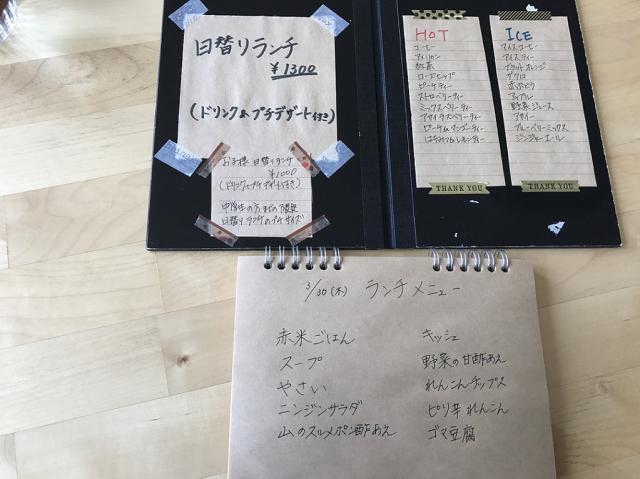 日替りランチ
¥1300
(ドリンク&プチデザート付き)
お子様 日替りランチ
¥1000
(ドリンク&プチデザート付き)
中学生の方までの限定
日替りランチのプチサイズ
HOT
コーヒー
アメリカン
紅茶
ローズヒップ
ピーチティー
ストロベリーティー
ミックスベリーティー
アサイラズベリーティー
はちみつ
THANK YOU
ICE
アイスコーヒー
アイスティー
ザクロ
ぶどう
アップル
野菜ジュース
アサイー
ブルーベリーミックス
ジンジャーエール
THANK YOU
3/30(木) ランチメニュー
赤米ごはん
スープ
やさい
ニンジンサラダ
山のスルメポン酢あえ
キッシュ
野菜の甘酢あえ
れんこんチップス
ピリ辛れんこん
ゴマ豆腐